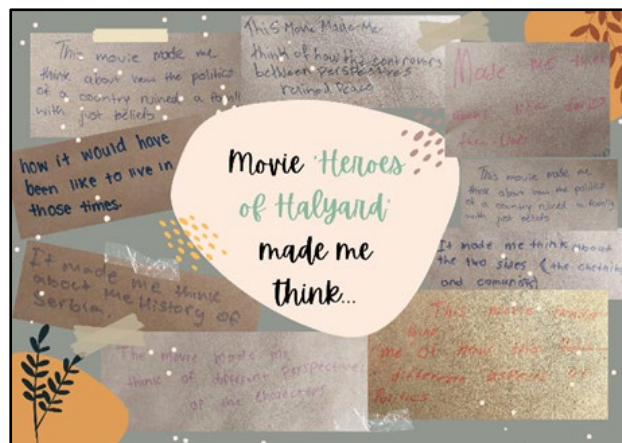 This movie made me
think about how the politics
of a country ruined a family
with just beliefs
This Movie Made Me
think of how the controversy
between perspectives
Peace
Made me think
about
how it would have
been like to live in
those times.
Movie 'Heroes
of Halyard'
made me
think...
This movie made me
think about how the politics
of a country ruined a family
with just beliefs
It made me think about
the two sides (the chetniks
and comunists)
It made me think
about the History of
Serbia.
The movie made me
think of different perspectives
of the characters
This movie
me of how this
different aspects of
Politics